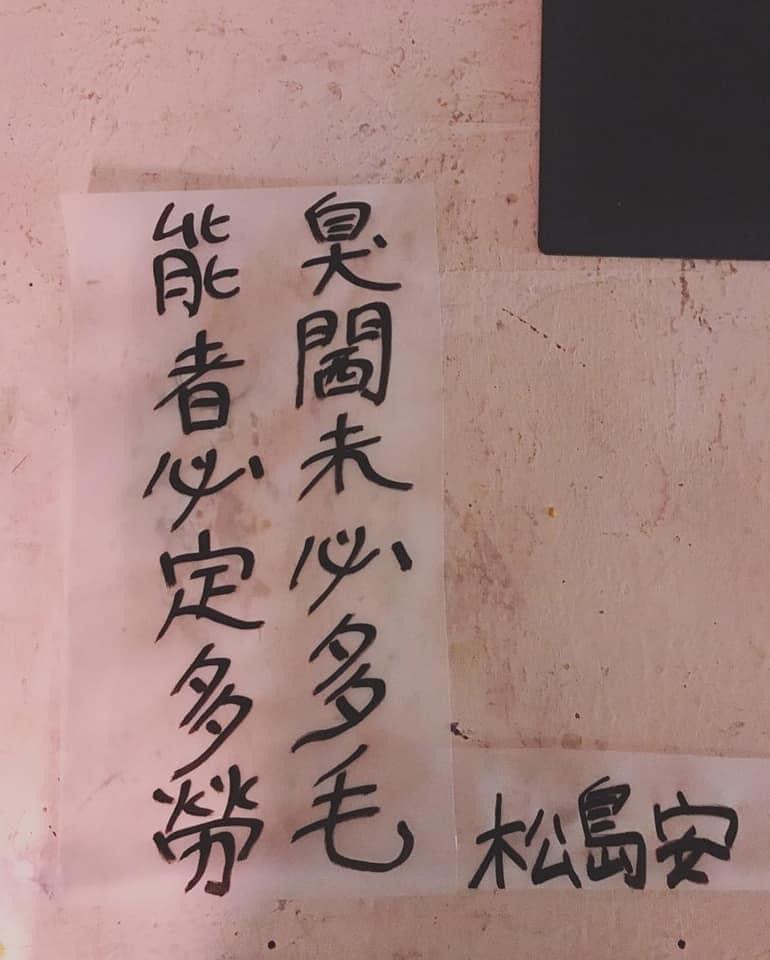 臭閪未必多毛
能者必定多勞
松島安